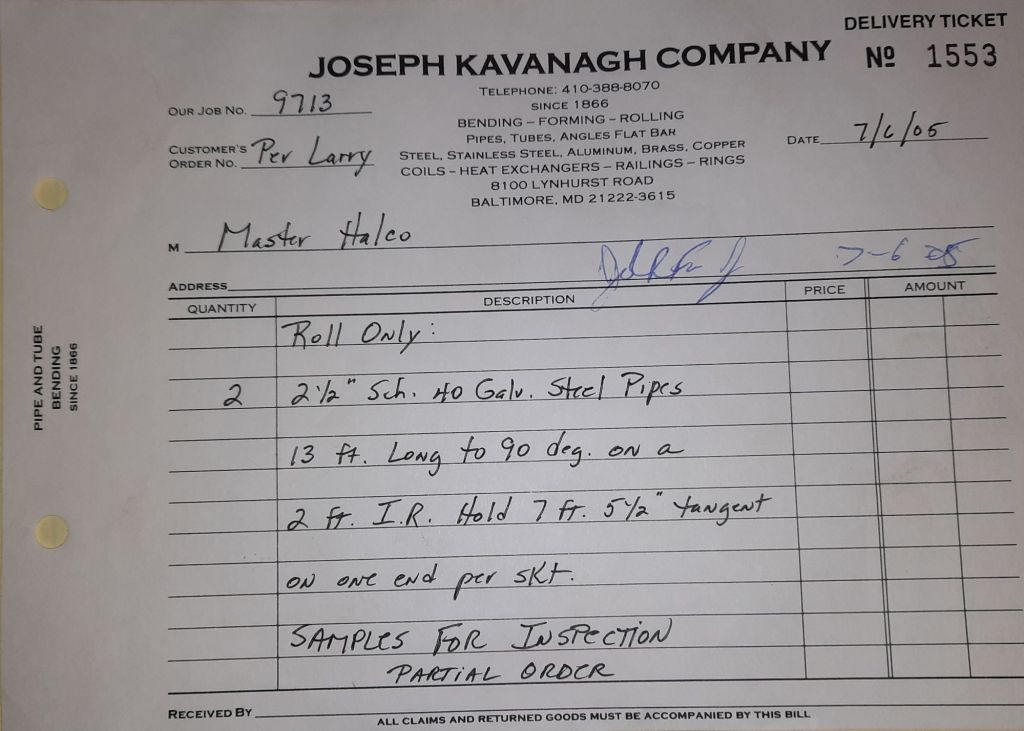 DELIVERY TICKET
JOSEPH KAVANAGH COMPANY
Nº 1553
TELEPHONE: 410-388-8070
SINCE 1866
BENDING – FORMING – ROLLING
PIPES, TUBES, ANGLES FLAT BAR
STEEL, STAINLESS STEEL, ALUMINUM, BRASS, COPPER
COILS – HEAT EXCHANGERS – RAILINGS – RINGS
8100 LYNHURST ROAD
BALTIMORE, MD 21222-3615
OUR JOB NO. 9713
CUSTOMER'S ORDER NO. Per Larry
DATE 7/6/05
M Master Halco
7-6 05
ADDRESS
QUANTITY DESCRIPTION PRICE AMOUNT
Roll Only:
2 2 1/2" Sch. 40 Galv. Steel Pipes
13 ft. Long to 90 deg. on a
2 ft. I.R. Hold 7 ft. 5 1/2" tangent
on one end per skt.
SAMPLES FOR INSPECTION
PARTIAL ORDER
RECEIVED BY
ALL CLAIMS AND RETURNED GOODS MUST BE ACCOMPANIED BY THIS BILL
PIPE AND TUBE
BENDING
SINCE 1866